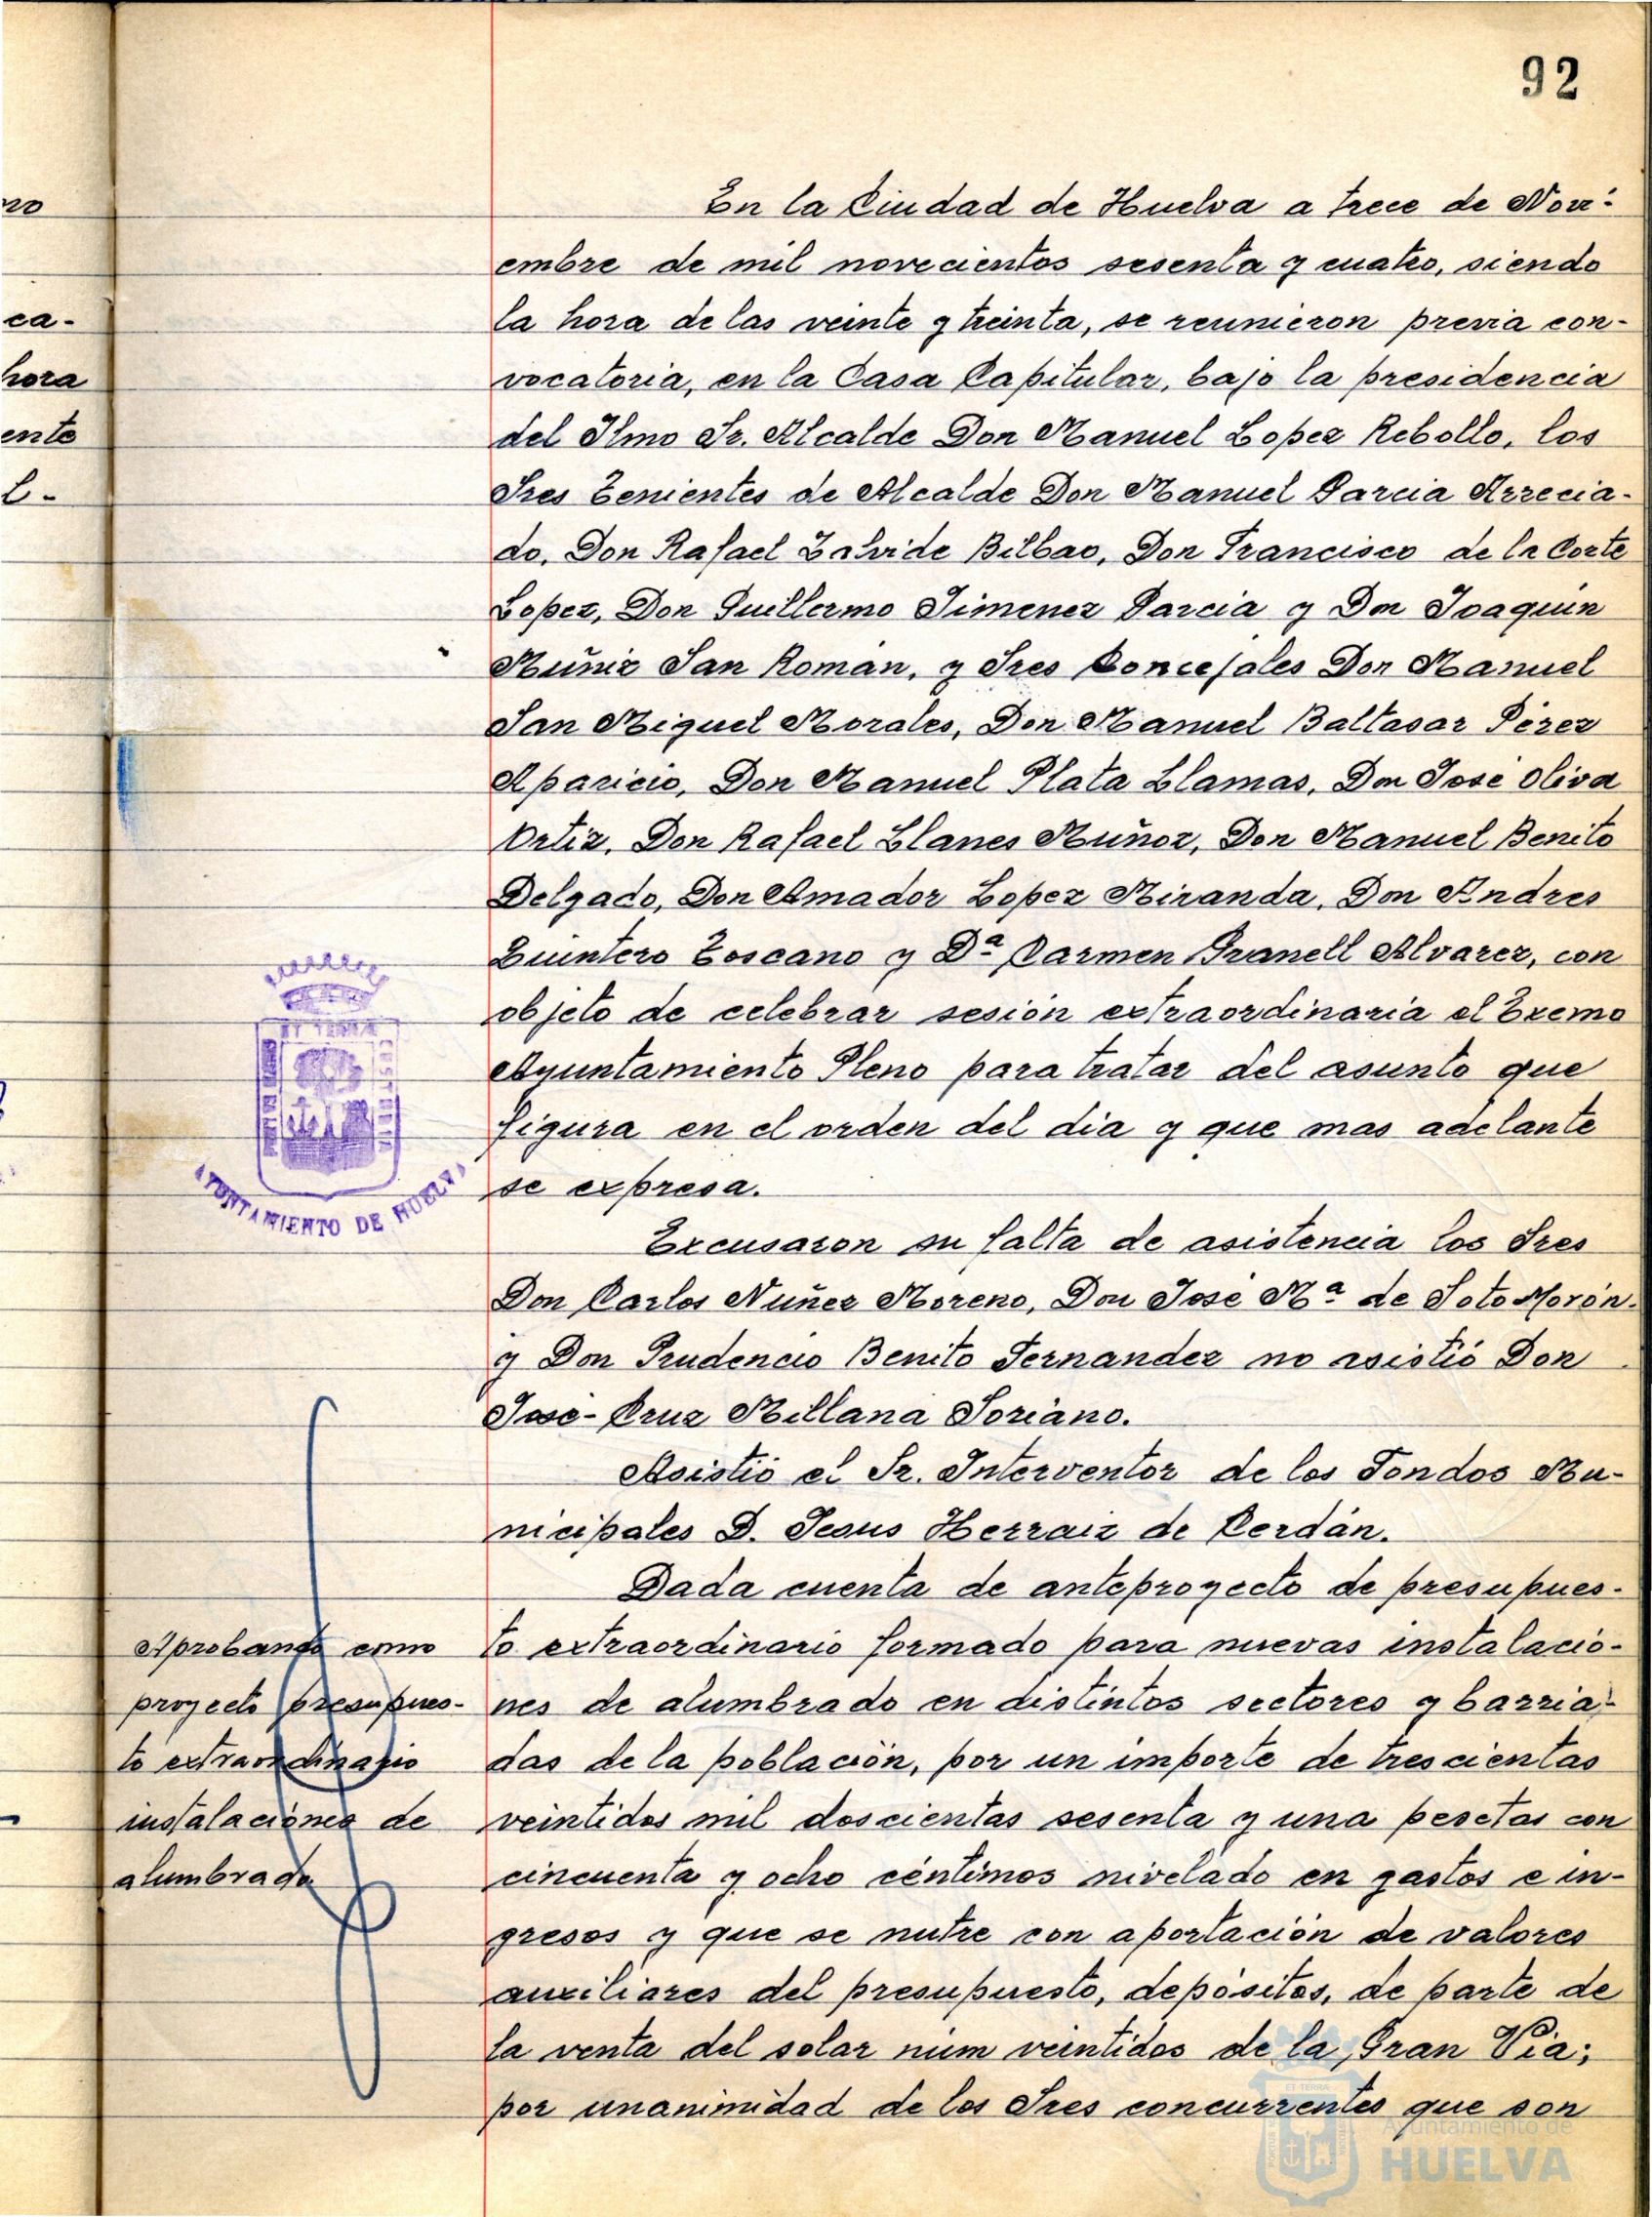 92
no
ca-
hora
ente
l-
En la Ciudad de Huelva a trece de Novi-
embre de mil novecientos sesenta y cuatro, siendo
la hora de las veinte y treinta, se reunieron previa con-
vocatoria, en la Casa Capitular, bajo la presidencia
del Ilmo Sr. Alcalde Don Manuel Lopez Rebollo, los
Sres Tenientes de Alcalde Don Manuel Garcia Arrecia-
do, Don Rafael Zalvide Bilbao, Don Francisco de la Corte
Lopez, Don Guillermo Jimenez Garcia y Don Joaquin
Muñiz San Roman, y Sres Concejales Don Manuel
San Miguel Morales, Don Manuel Baltasar Pérez
Aparicio, Don Manuel Plata Llamas, Don Jose Oliva
Ortiz, Don Rafael Llanes Muñoz, Don Manuel Benito
Delgado, Don Amador Lopez Miranda, Don Andres
Quintero Toscano y Dª Carmen Granell Alvarez, con
objeto de celebrar sesión extraordinaria el Excmo
Ayuntamiento Pleno para tratar del asunto que
figura en el orden del dia y que mas adelante
se expresa.
ET TERRA
AYUNTAMIENTO DE HUELVA
Excusaron su falta de asistencia los Sres
Don Carlos Nuñez Moreno, Don Jose Mª de Soto Morón.
y Don Prudencio Benito Fernandez no asistió Don
José-Cruz Millana Soriano.
Asistió el Sr. Interventor de los Fondos Mu-
nicipales D. Jesus Herraiz de Cerdán.
Dada cuenta de anteproyecto de presupues-
to extraordinario formado para nuevas instalacio-
nes de alumbrado en distintos sectores y barria-
das de la población, por un importe de trescientas
veintidos mil doscientas sesenta y una pesetas con
cincuenta y ocho céntimos nivelado en gastos e in-
gresos y que se nutre con aportación de valores
auxiliares del presupuesto, depósitos, de parte de
la venta del solar núm veintidos de la Gran Via;
por unanimidad de los Sres concurrentes que son
Aprobando como
proyecto presupues-
to extraordinario
instalaciones de
alumbrado
Ayuntamiento de
HUELVA